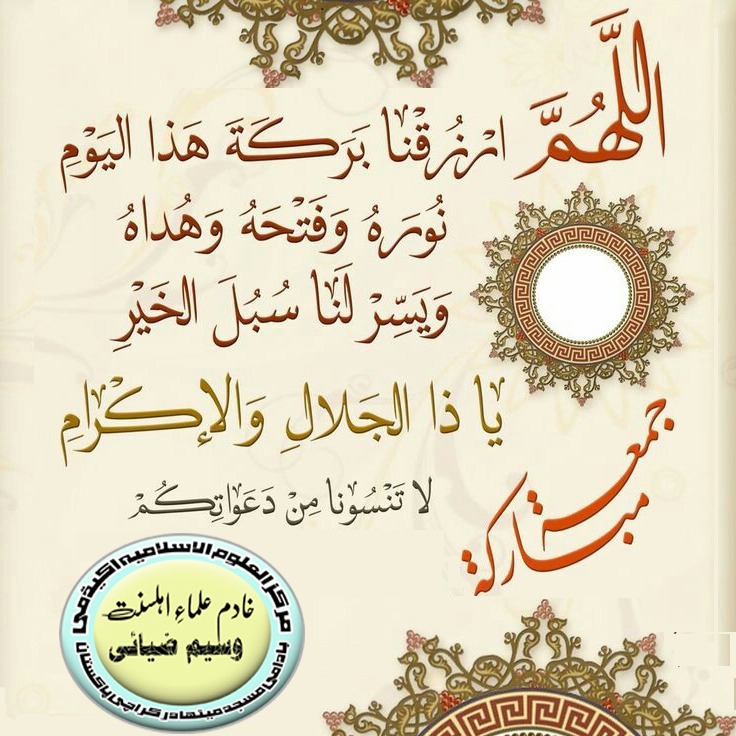 اللَّهُمَّ ارْزُقْنَا بَرَكَةَ هَذَا اليَوْمِ
نُورَهُ وَفَتْحَهُ وَهُدَاهُ
وَيَسِّرْ لَنَا سُبُلَ الخَيْرِ
يا ذا الجَلالِ وَالإكْرَامِ
لا تَنْسُونا مِنْ دَعَوَاتِكُمْ
جمعة
مباركة
مرکز العلوم الاسلامیہ اکیڈمی
خادم علماءِ اہلسنت
وسیم ضیائی
بادامی مسجد میٹھادر کراچی پاکستان